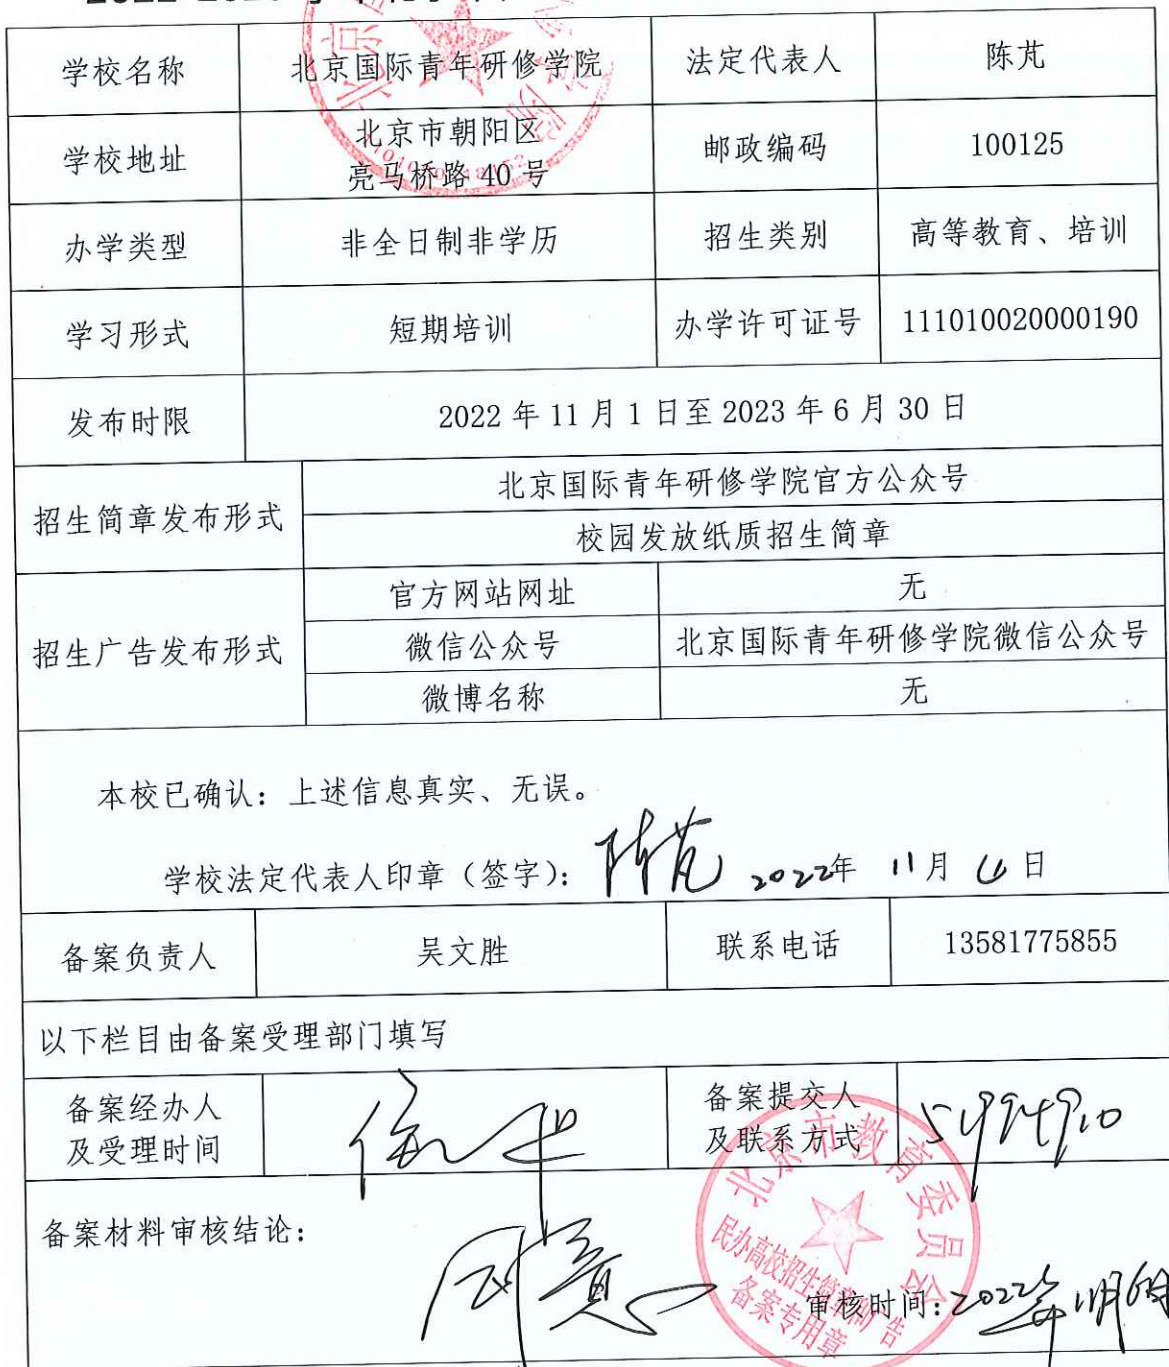 学校名称 北京国际青年研修学院 法定代表人 陈芃
学校地址 北京市朝阳区 邮政编码 100125
亮马桥路 40 号
办学类型 非全日制非学历 招生类别 高等教育、培训
学习形式 短期培训 办学许可证号 111010020000190
发布时限 2022 年 11 月 1 日至 2023 年 6 月 30 日
招生简章发布形式 北京国际青年研修学院官方公众号
校园发放纸质招生简章
招生广告发布形式 官方网站网址 无
微信公众号 北京国际青年研修学院微信公众号
微博名称 无
本校已确认：上述信息真实、无误。
学校法定代表人印章（签字）：陈芃 2022年 11月 日
备案负责人 吴文胜 联系电话 13581775855
以下栏目由备案受理部门填写
备案经办人 备案提交人
及受理时间 及联系方式
北京市教育委员会
备案材料审核结论：
同意
民办高校招生简章和广告
备案专用章
审核时间：2022年11月